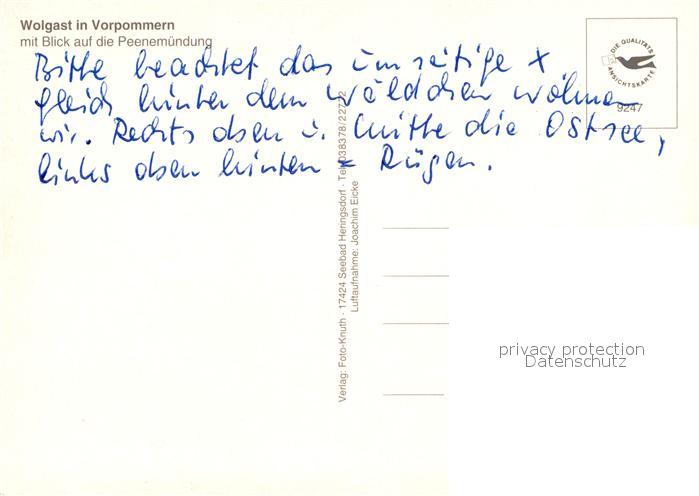 Wolgast in Vorpommern
mit Blick auf die Peenemündung
Bitte beachtet das umseitige x
gleich hinter dem Wäldchen wohnen
wir. Rechts oben u. Mitte die Ostsee,
links oben hinten = Rügen.
DIE QUALITÄTS
ANSICHTSKARTE
9247
Verlag: Foto-Knuth · 17424 Seebad Heringsdorf · Tel. 038378/22722
Luftaufnahme: Joachim Eicke
privacy protection
Datenschutz